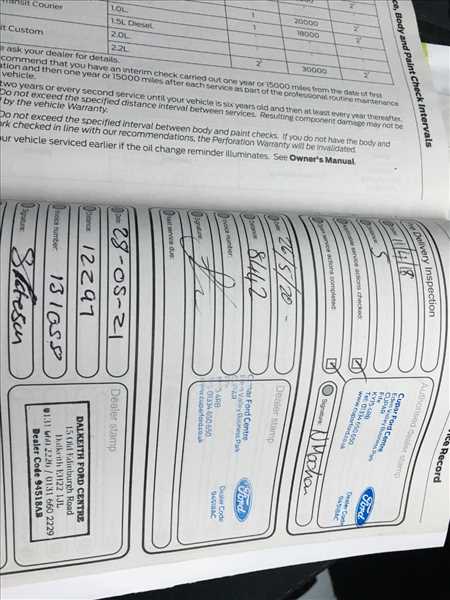 ransit Courier
1.0L.
1.5L Diesel.
1
20000
2*
it Custom
2.0L.
1
18000
2*
2.2L.
2*
30000
2*
e ask your dealer for details.
commend that you have an interim check carried out one year or 15000 miles from the date of first
ation and then one year or 15000 miles after each service as part of the professional routine maintenance
vehicle.
two years or every second service until your vehicle is six years old and then at least every year thereafter.
Do not exceed the specified distance interval between services. Resulting component damage may not be
by the vehicle Warranty.
Do not exceed the specified interval between body and paint checks. If you do not have the body and
rk checked in line with our recommendations, the Perforation Warranty will be invalidated.
ur vehicle serviced earlier if the oil change reminder illuminates. See Owner's Manual.
ce, Body and Paint Check Intervals
ice Record
e Delivery Inspection
Authorised dealer stamp
11/4/18
5
service actions checked:
service actions completed:
Signature:
Ford Centre
KY15 4RB
Tel: 01334 650 650
Ford
Dealer Code
94518AC
Date:
26/5/20
Distance:
8442
Invoice number:
Signature:
service due:
Dealer stamp
Ford Centre
Valley Business Park
4RB
01334 650 650
Ford
Dealer Code
94518AC
Date:
28-05-21
Distance:
12297
Invoice number:
Signature:
Dealer stamp
DALKEITH FORD CENTRE
15 Old Edinburgh Road
Dalkeith EH22 1JL
0131 660 2226 / 0131 660 2229
Dealer Code 94518AB